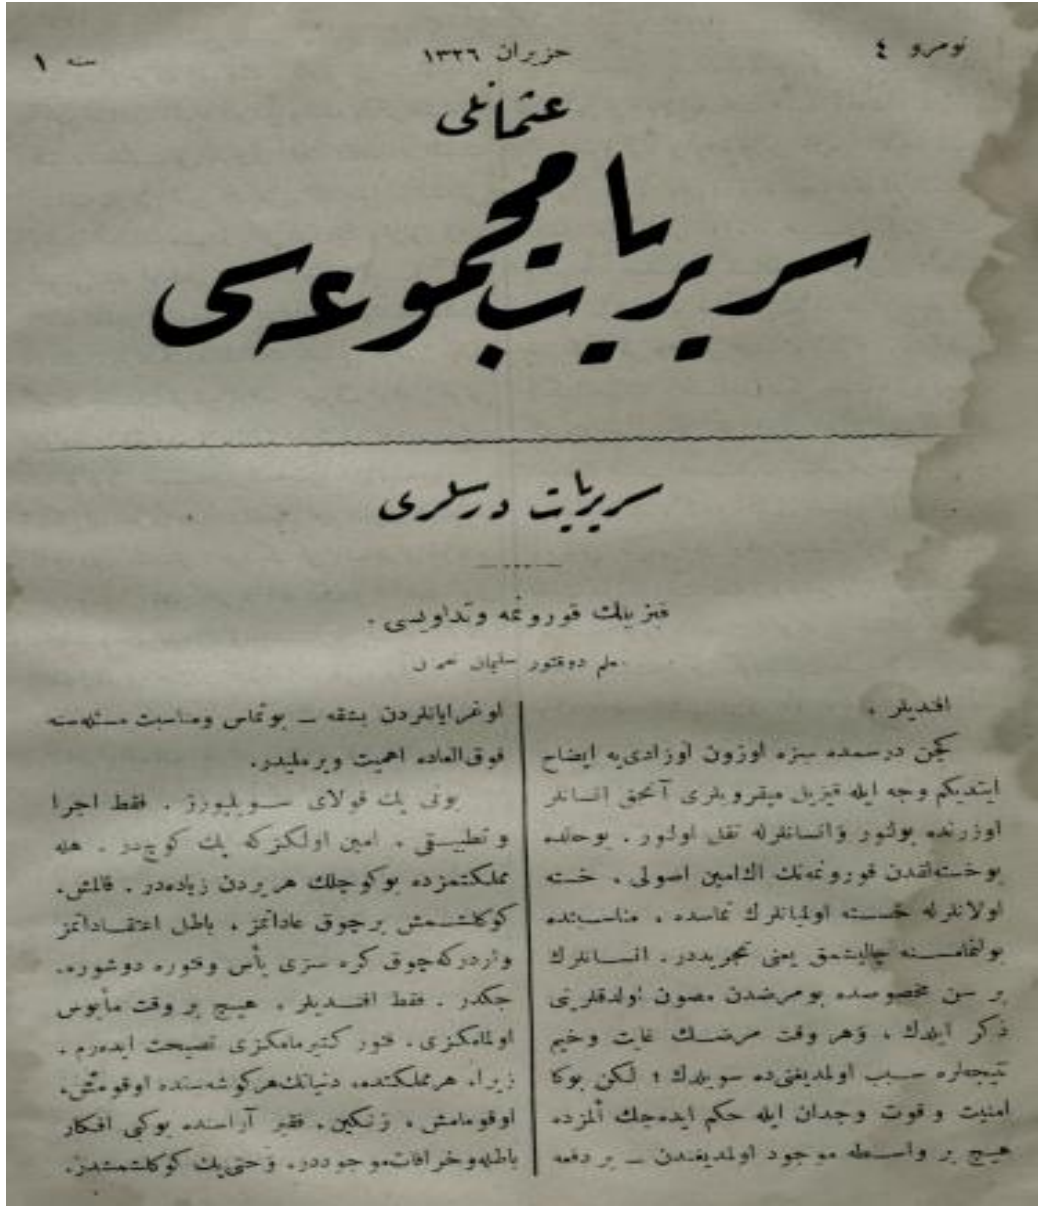 نومرو ٤
حزیران ١٣٢٦
سنه ١
عثمانلی
سریریات مجموعه‌سی
سریریات درسلری
قیزیلك قورونمه وتداویسی .
معلم دوقتور سلیمان نعمان
افندیلر ،
كچن درسمده سزه اوزون اوزادی‌یه ایضاح
ایتدیكم وجه ایله قیزیل میقروبلری آنجق انسانلر
اوزرنده بولنور وانسانلرله نقل اولنور . بوحالده
بوخسته‌لقدن قورونمه‌نك اك‌امین اصولی ، خسته
اولانلرله خسته اولمیانلرك تماسده ، مناسبتده
بولنمامسنه چالیشمق یعنی تجریددر . انسانلرك
بر سن مخصوصده بومرضدن مصون اولدقلرینی
ذكر ایتدك ، وهر وقت مرضك غایت وخیم
نتیجه‌لره سبب اولمدیغنی‌ده سویلدك ؛ لكن بوكا
امنیت وقوت وجدان ایله حكم ایده‌جك المزده
هیچ بر واسطه موجود اولمدیغندن — بر دفعه
اوغرایانلردن بشقه — بوتماس ومناسبت مسئله‌سنه
فوق‌العاده اهمیت ویرملیدر.
بونی پك قولای سویلیورز . فقط اجرا
وتطبیقی ، امین اولكزكه پك كوچدر . هله
مملكتمزده بوكوچلك هریردن زیاده‌در . قالمش،
كوكلشمش برچوق عاداتمز ، باطل اعتقاداتمز
واردركه‌چوق كره سزی یأس وفتوره دوشوره‌
جكدر . فقط افندیلر ، هیچ بر وقت مأیوس
اولمامكزی ، فتور كتیرمامكزی نصیحت ایده‌رم .
زیرا، هرمملكتده، دنیانك‌هركوشه‌سنده اوقومش،
اوقومامش ، زنكین، فقیر آراسنده بوكبی افكار
باطله‌وخرافات‌موجوددر. وحتی‌پك كوكلشمشدر.